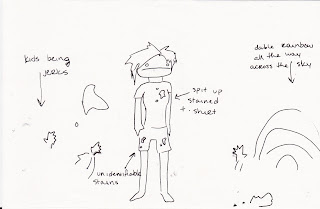 kids being
jerks
spit up
stained
t-shirt
unidentifiable
stains
duble rainbow
all the way
across the sky